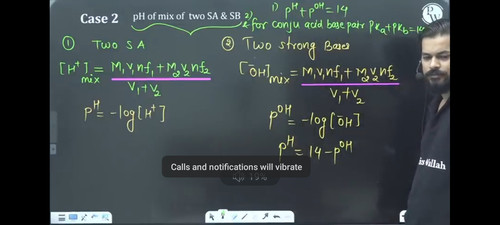 Case 2
pH of mix of two SA & SB
1) pH + pOH = 14
2) for conju acid base pair pKa + pKb = 14
① TWO SA
[H+]mix = M1V1nf1 + M2V2nf2
V1 + V2
pH = -log[H+]
② Two strong Bases
[OH]mix = M1V1nf1 + M2V2nf2
V1 + V2
pOH = -log[OH]
pH = 14 - pOH
Calls and notifications will vibrate